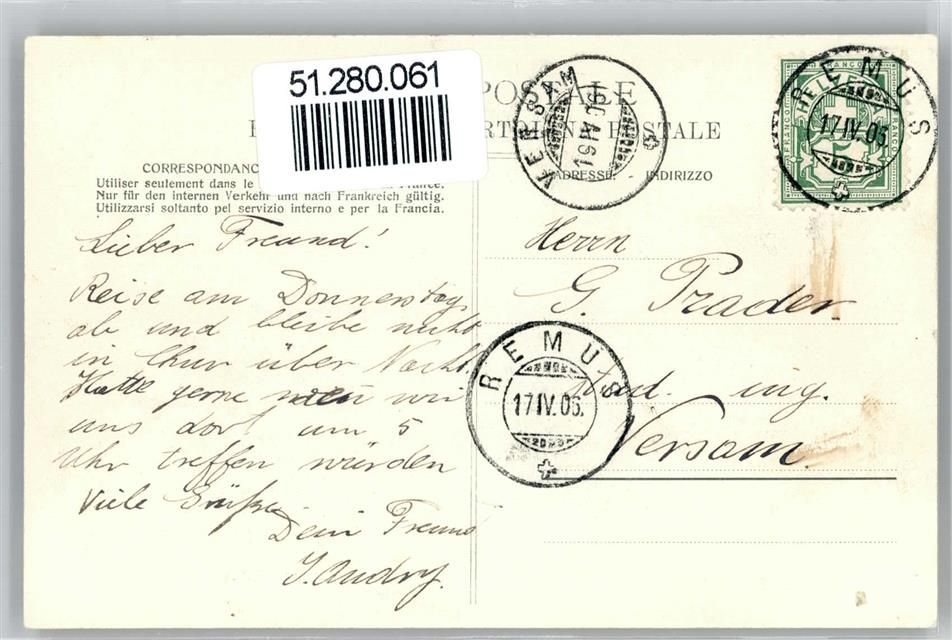 51.280.061
POSTALE
POSTALE
CORRESPONDANC
ADRESSE INDIRIZZO
Utiliser seulement dans le France.
Nur für den internen Verkehr und nach Frankreich gültig.
Utilizzarsi soltanto pel servizio interno e per la Francia.
FRANCO
HELVETIA
REMUS
17.IV.06.
VERSAM
Lieber Freund!
Reise am Donnerstag
ab und bleibe nicht
in Chur über Nacht.
Hatte gerne wir
uns dort um 5
Uhr treffen würden
Viele Grüße
Dein Freund
Herrn
G. Prader
stud. ing.
Versam.
REMUS
17.IV.06.